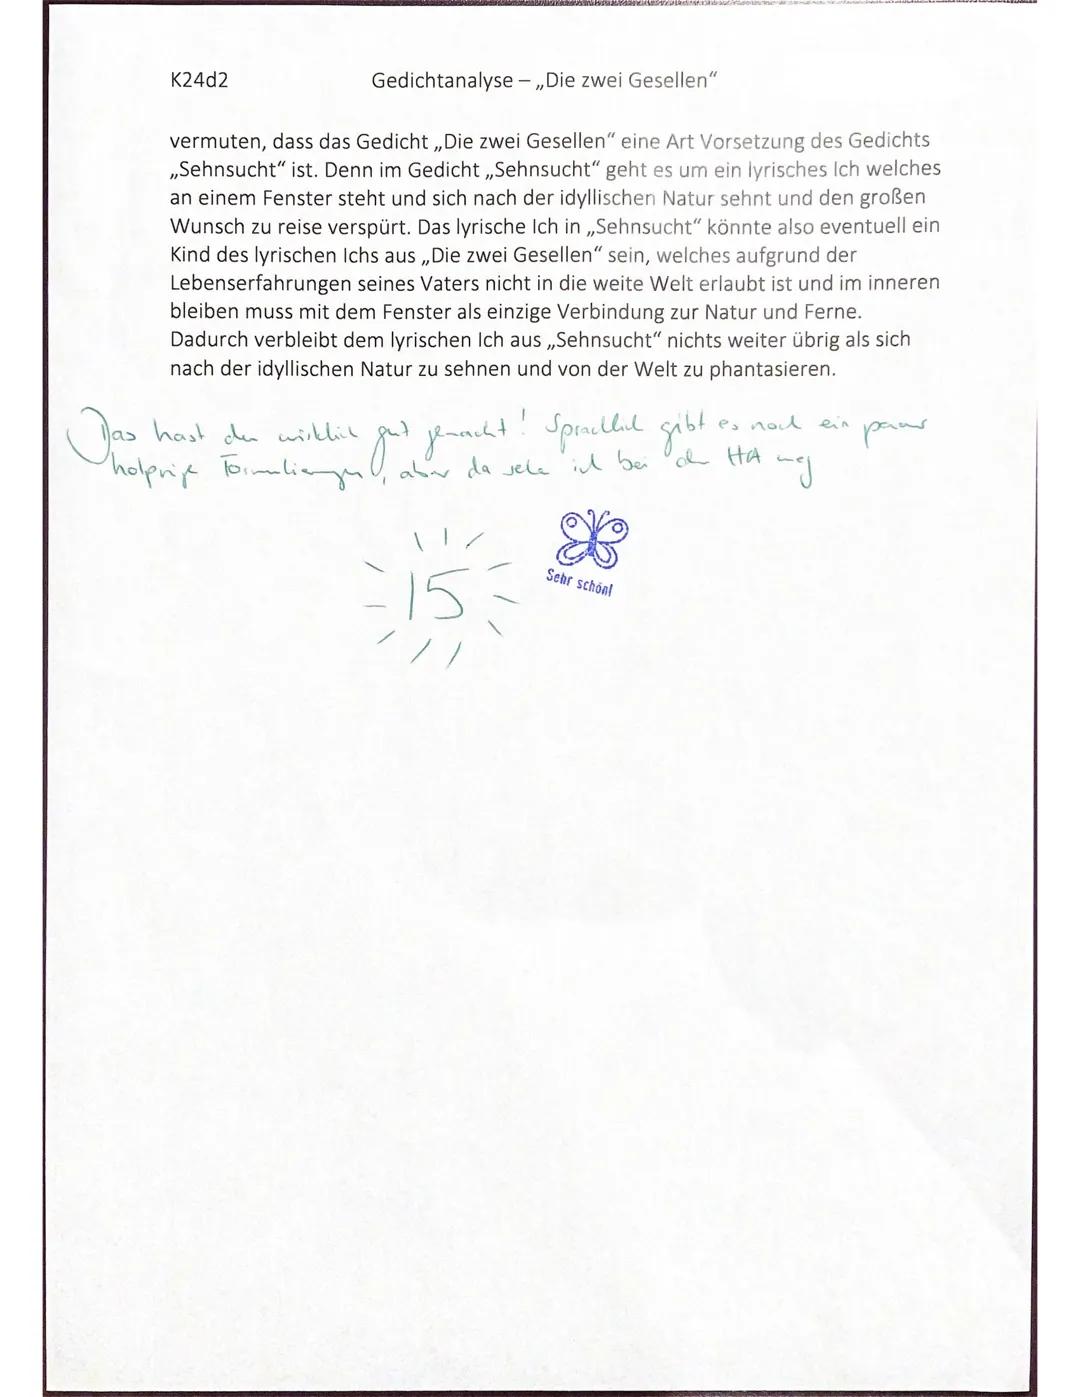 K24d2 Gedichtanalyse – „Die zwei Gesellen“
vermuten, dass das Gedicht „Die zwei Gesellen“ eine Art Vorsetzung des Gedichts
„Sehnsucht“ ist. Denn im Gedicht „Sehnsucht“ geht es um ein lyrisches Ich welches
an einem Fenster steht und sich nach der idyllischen Natur sehnt und den großen
Wunsch zu reise verspürt. Das lyrische Ich in „Sehnsucht“ könnte also eventuell ein
Kind des lyrischen Ichs aus „Die zwei Gesellen“ sein, welches aufgrund der
Lebenserfahrungen seines Vaters nicht in die weite Welt erlaubt ist und im inneren
bleiben muss mit dem Fenster als einzige Verbindung zur Natur und Ferne.
Dadurch verbleibt dem lyrischen Ich aus „Sehnsucht“ nichts weiter übrig als sich
nach der idyllischen Natur zu sehnen und von der Welt zu phantasieren.
Das hast du wirklich gut gemacht! Sprachlich gibt es noch ein paar
holprige Formulierungen, aber da sehe ich bei der HA weg
15
Sehr schön!